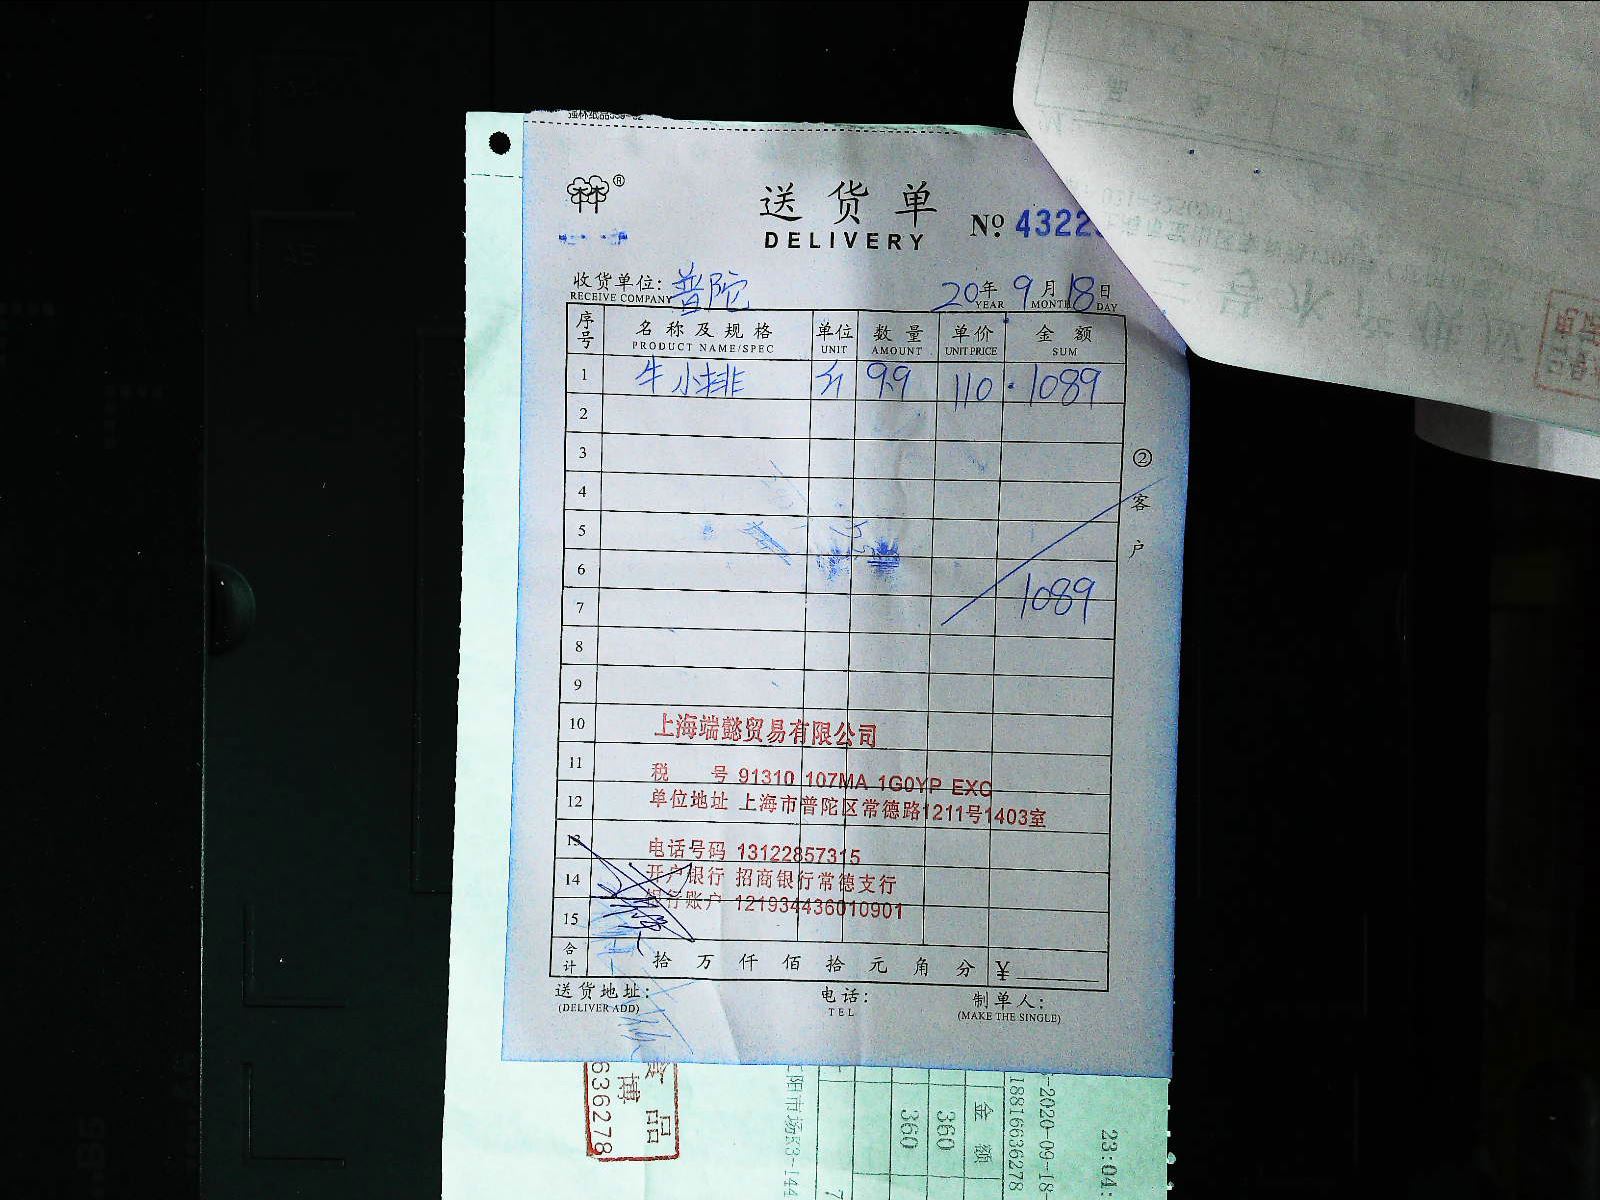 送货单
DELIVERY
№ 4322
收货单位: 普陀 20年 9月 18日
RECEIVE COMPANY YEAR MONTH DAY
序号 名称及规格 单位 数量 单价 金额
PRODUCT NAME/SPEC UNIT AMOUNT UNIT PRICE SUM
1 牛小排 斤 9.9 110. 1089
2
3
② 客户
4
5
6
1089
7
8
9
10
上海端懿贸易有限公司
11
税 号 91310 107MA 1G0YP EXC
12
单位地址 上海市普陀区常德路1211号1403室
13
电话号码 13122857315
14
开户银行 招商银行常德支行
银行账户 121934436010901
15
合计 拾 万 仟 佰 拾 元 角 分 ¥
送货地址: 电话: 制单人:
(DELIVER ADD) TEL (MAKE THE SINGLE)
博
品
636278
江阳市场K3-144
360
360
金额
18816636278
-2020-09-18-
23:04: